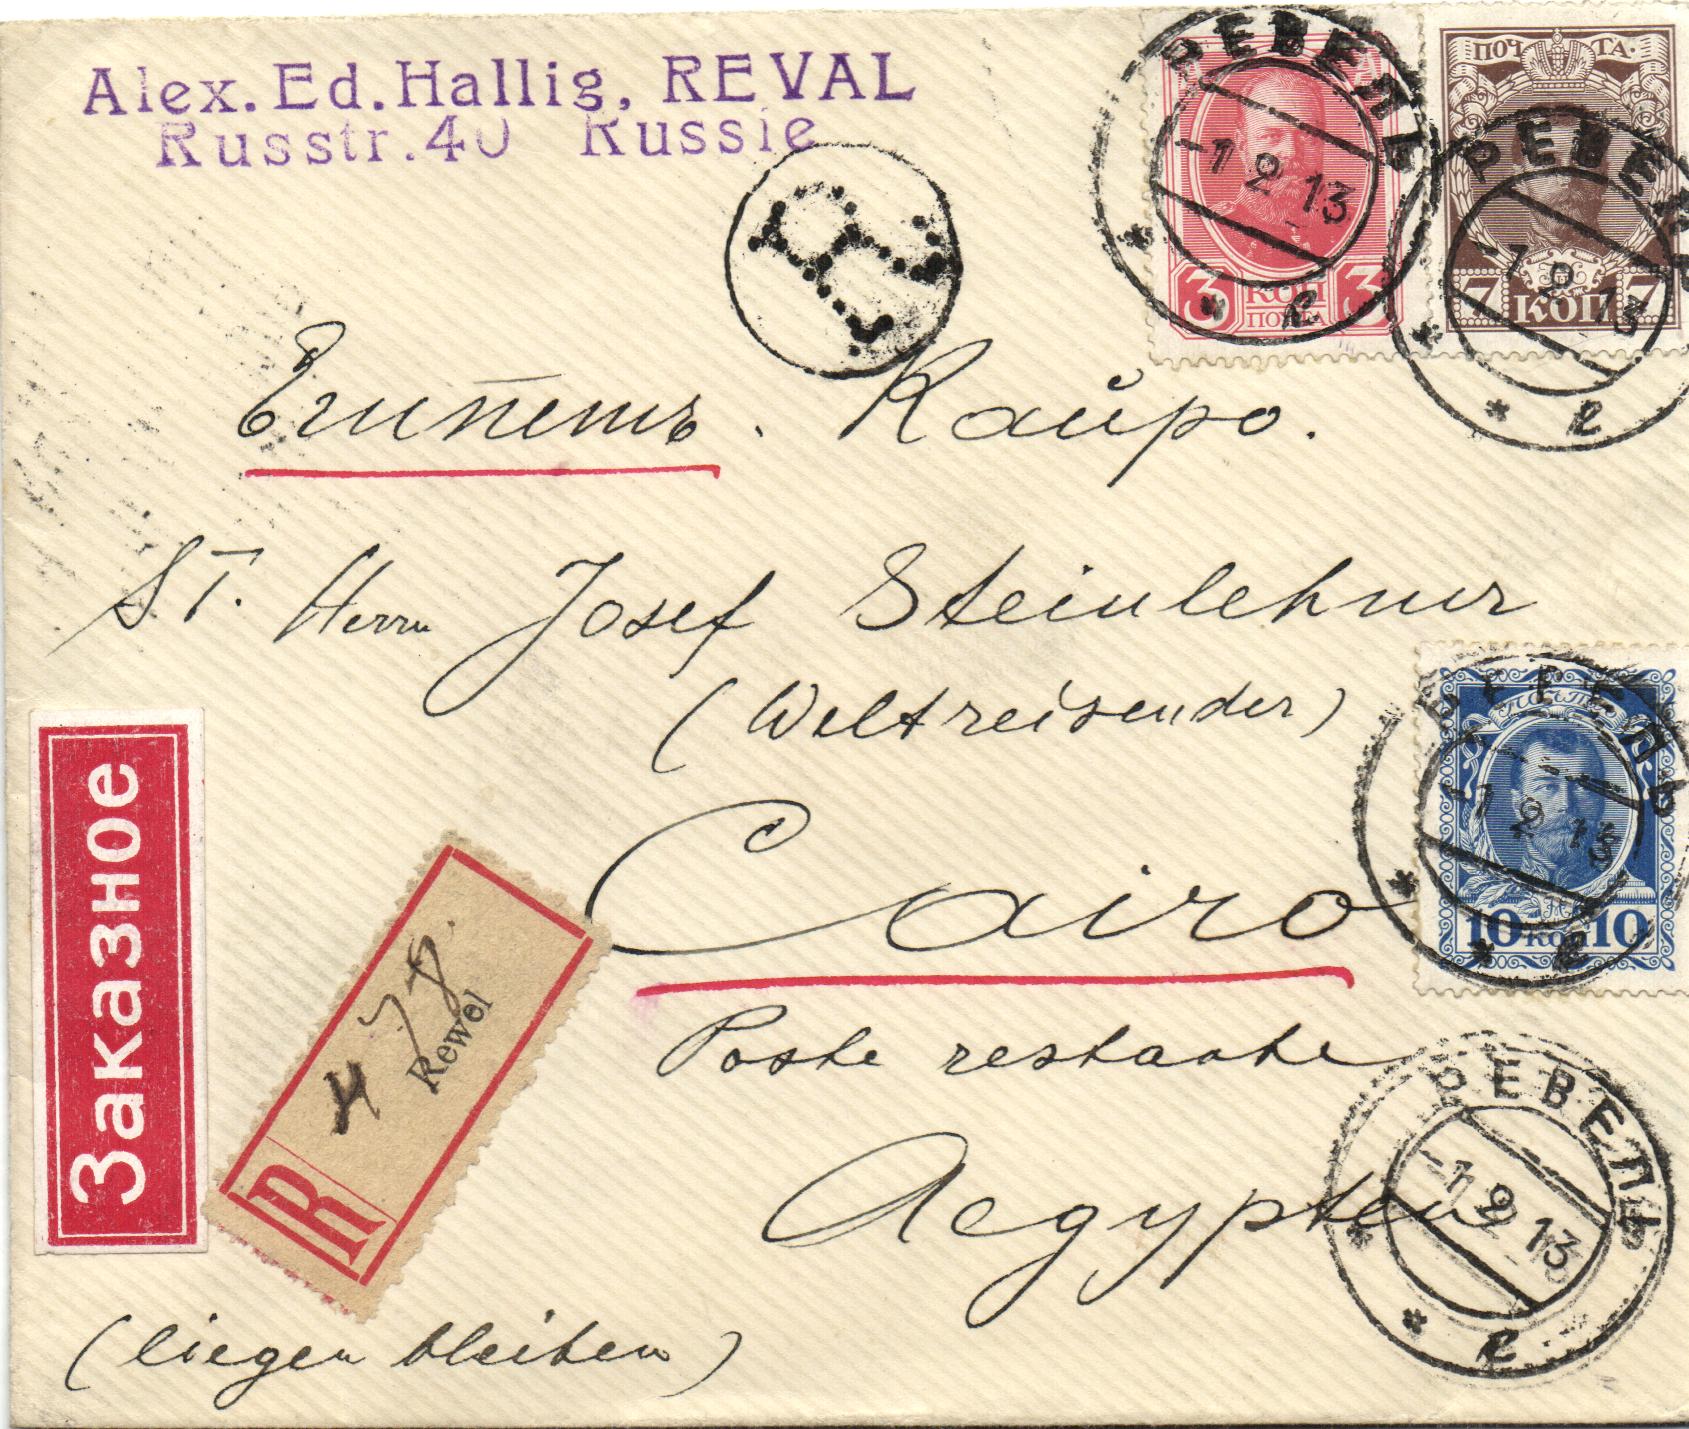 Alex. Ed. Hallig, REVAL
Russtr. 40 Russie
РЕВЕЛЬ
-1 2 13
г
3 КОП 3
ПОЧТА
ПОЧТА.
РЕВЕЛЬ
-1 2 13
г
7 КОП 7
R
Египетъ. Каиро.
ST. Herrn Josef Steinlehner
(Weltreisender)
РЕВЕЛЬ
-1 2 13
г
10 КОП 10
Cairo
Заказное
R
Rewel
Poste restante
Aegypten
РЕВЕЛЬ
-1 2 13
г
(liegen bleiben)